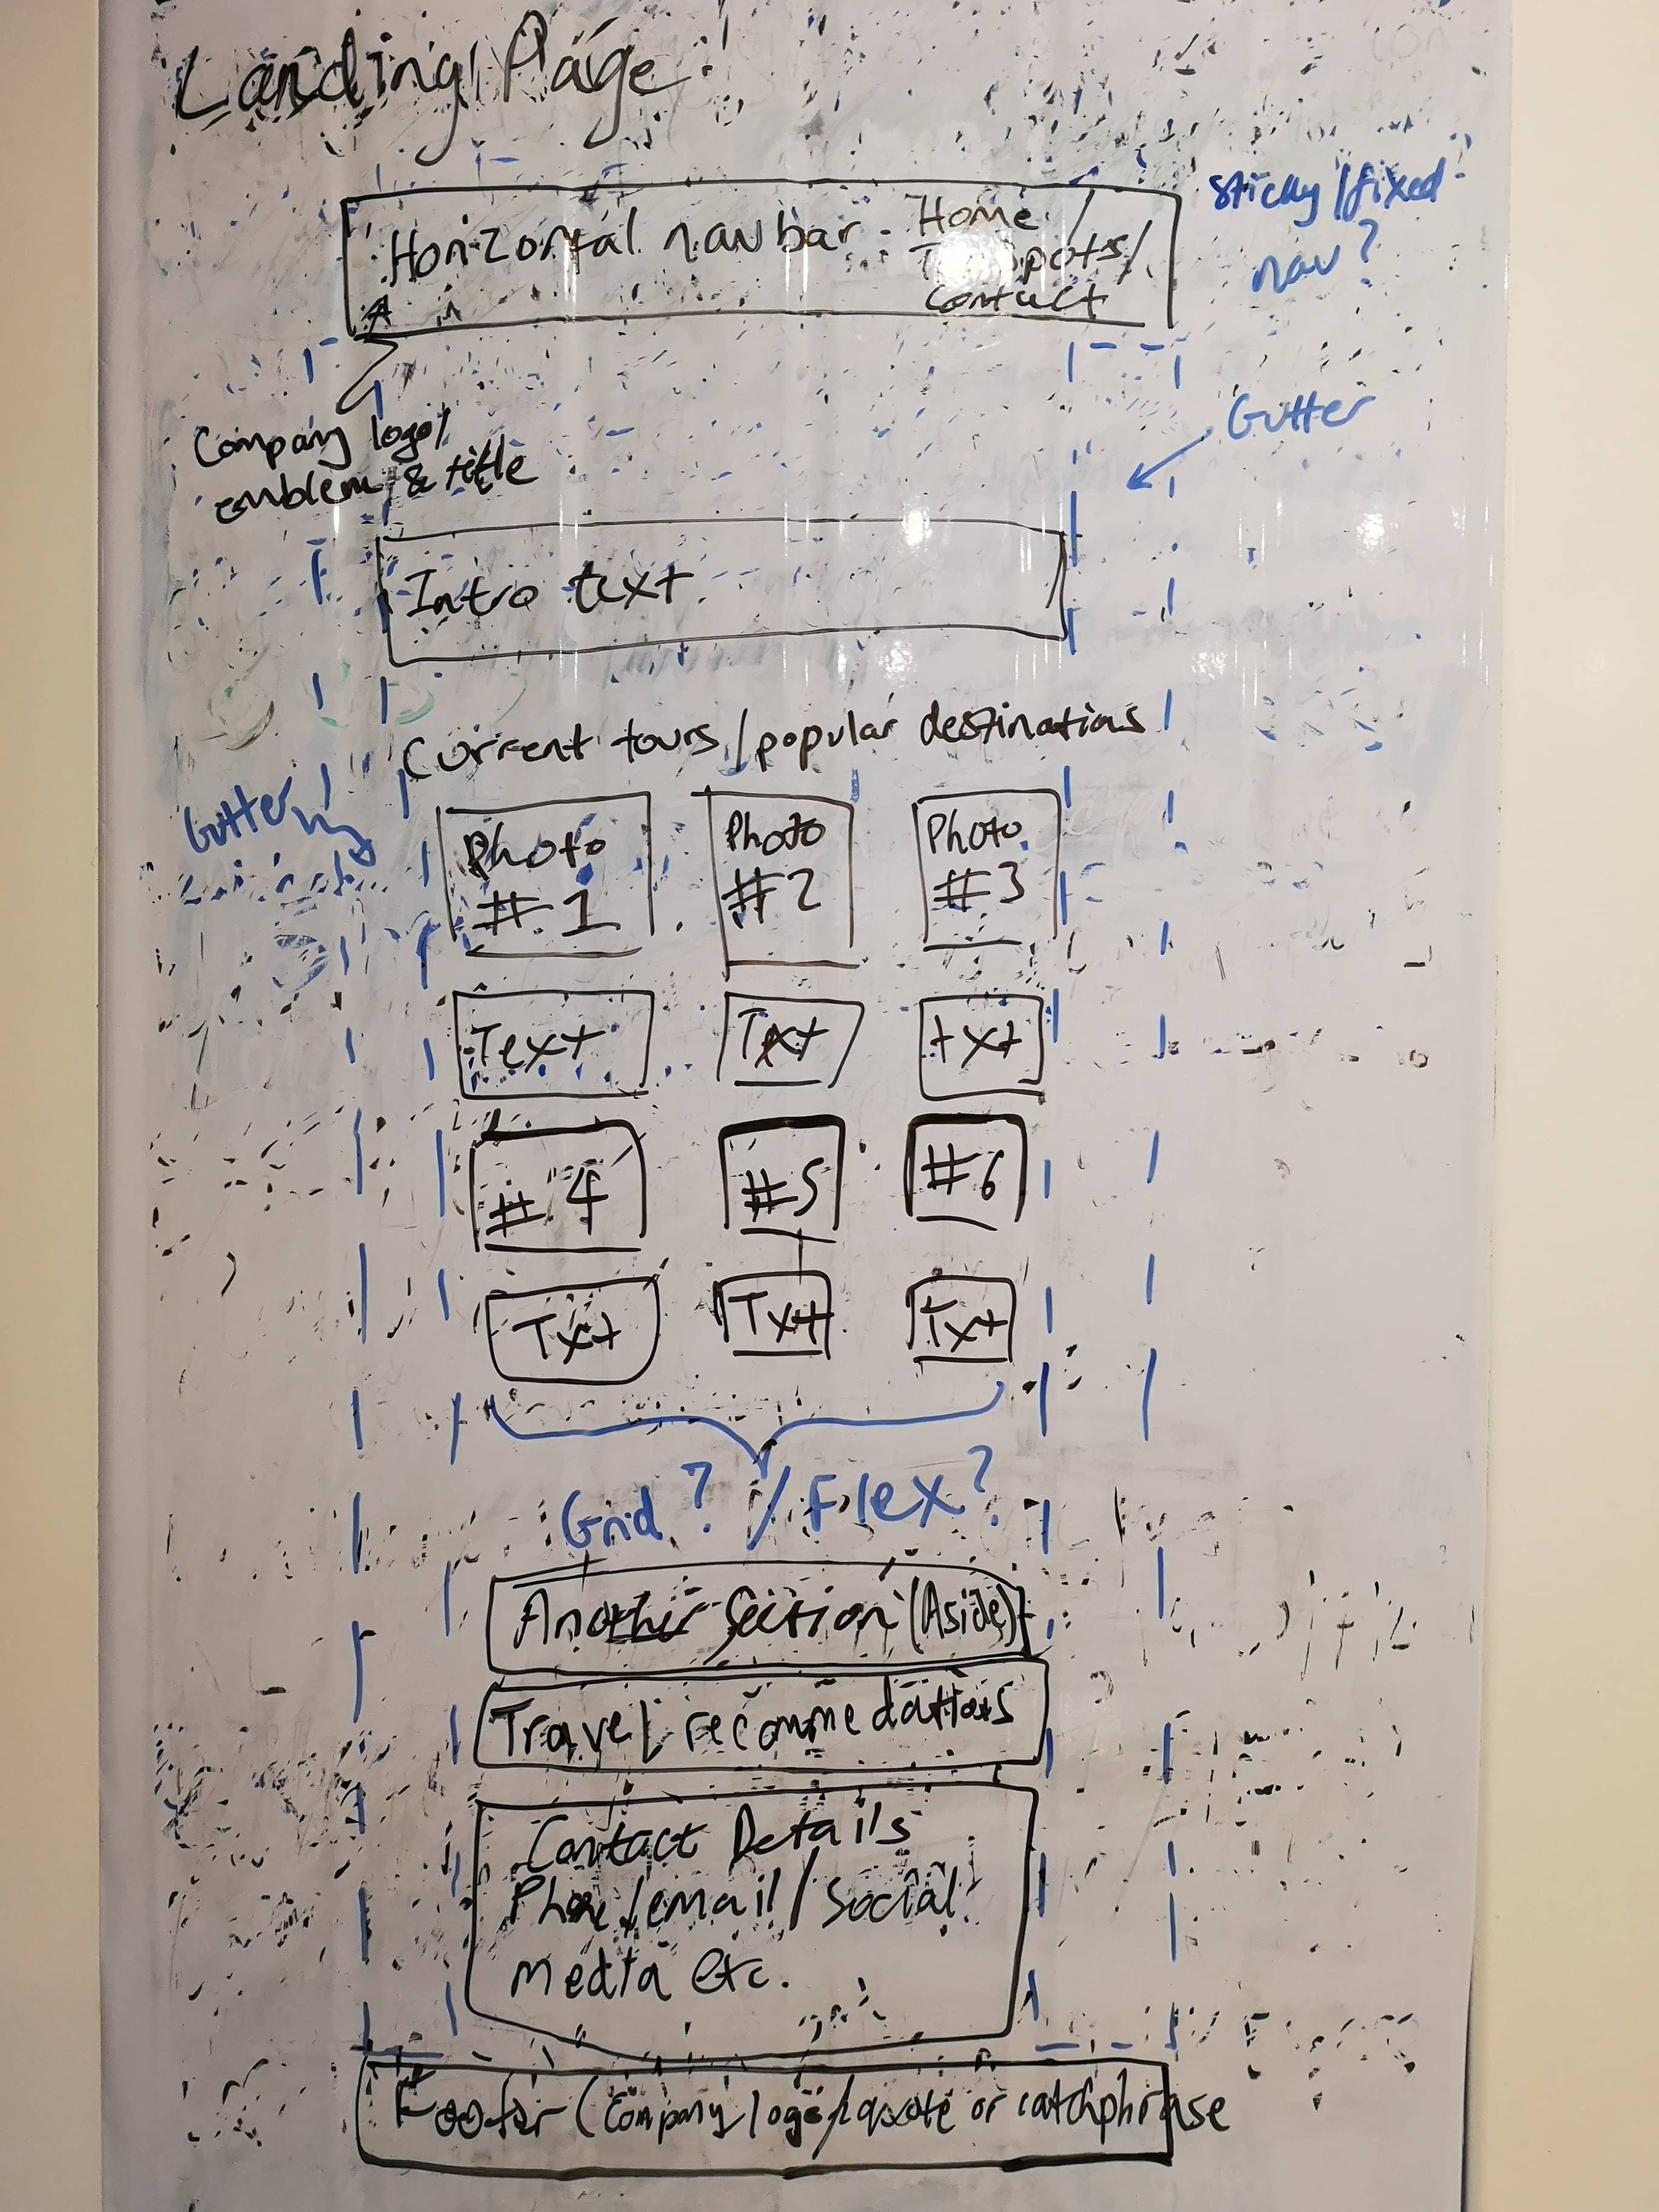 Landing Page
Horizontal navbar - Home /
pots/
Contact
sticky/fixed
nav?
Company logo/
emblem & title
Gutter
Intro text
Current tours/popular destinations
Gutter
Photo
#1
Photo
#2
Photo
#3
Text
Text
txt
#4
#5
#6
Txt
Txt
Txt
Grid? / Flex?
Another Section (Aside)
Travel recommedations
Contact Details
Phone/email/Social
Media etc.
Footer (Company logo/quote or catchphrase